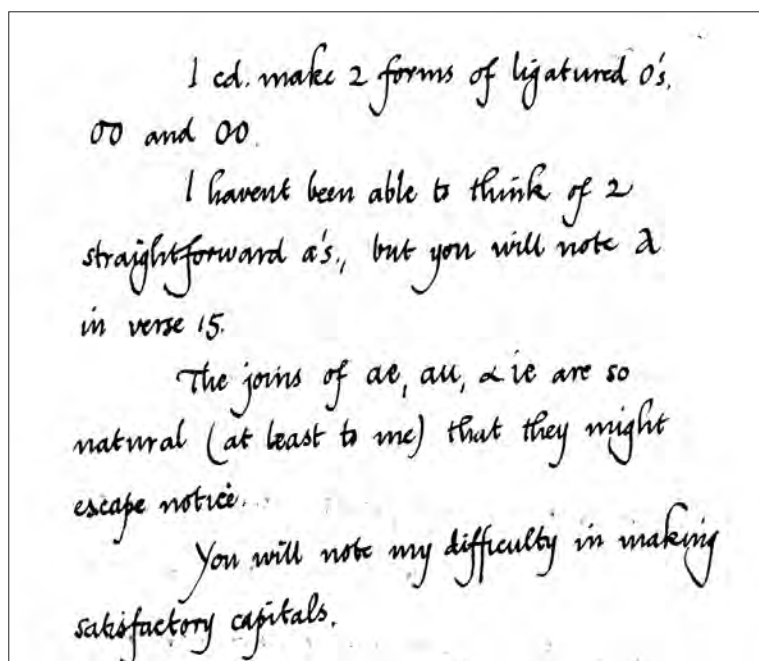 I cd. make 2 forms of ligatured o's,
oo and oo.
I havent been able to think of 2
straightforward a's., but you will note a
in verse 15.
The joins of ae, au, & ie are so
natural (at least to me) that they might
escape notice.
You will note my difficulty in making
satisfactory capitals.